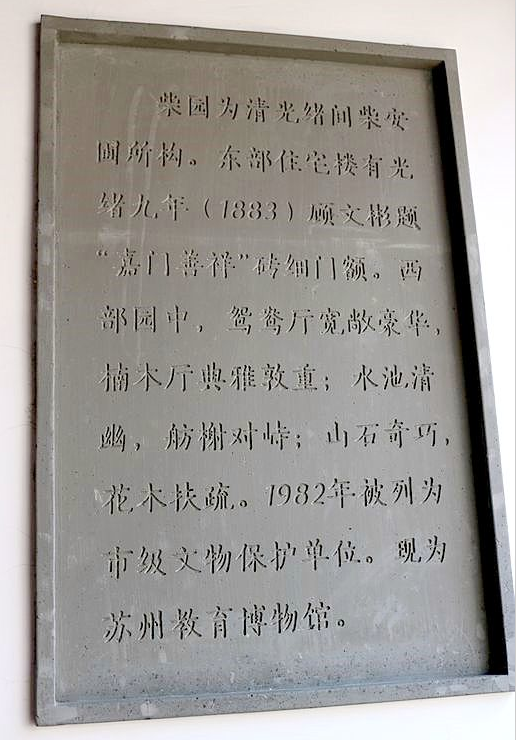 柴园为清光绪间柴安
圃所构。东部住宅楼有光
绪九年（1883）顾文彬题
“嘉门善祥”砖细门额。西
部园中，鸳鸯厅宽敞豪华，
楠木厅典雅敦重；水池清
幽，舫榭对峙；山石奇巧，
花木扶疏。1982年被列为
市级文物保护单位。现为
苏州教育博物馆。